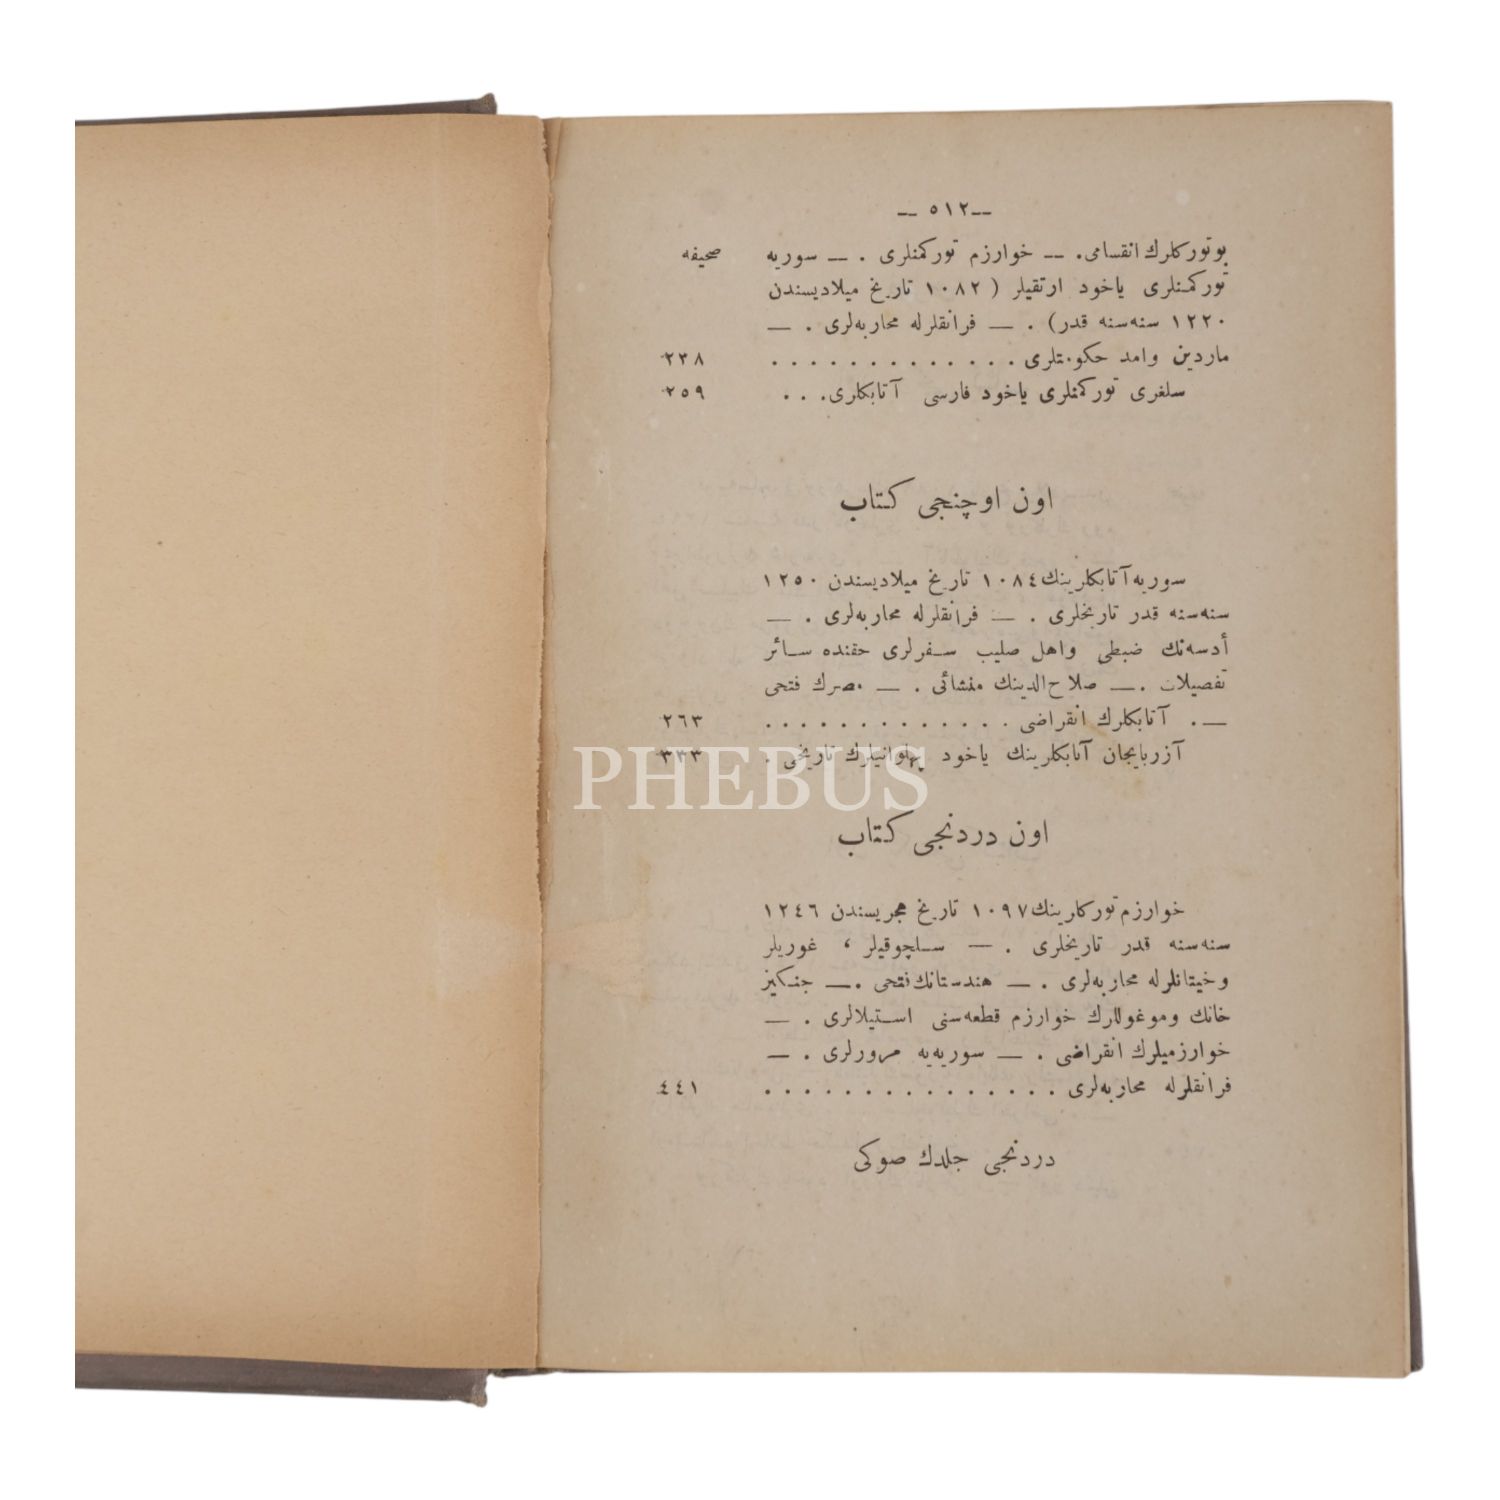 — ٥١٢ —
بوتوركلرك انقسامی. — خوارزم توركمنلری . — سوریه صحیفه
توركمنلری یاخود ارتقیلر ( ١٠٨٢ تاریخ میلادیسندن
١٢٢٠ سنه‌سنه قدر) . — فرانقلرله محاربه‌لری . —
ماردین وامد حكومتلری . . . . . . . . . . . . . ٢٣٨
سلغری توركمنلری یاخود فارسی آتابكلری. . . ٢٥٩
اون اوچنجی كتاب
سوریه آتابكلرینك ١٠٨٤ تاریخ میلادیسندن ١٢٥٠
سنه‌سنه قدر تاریخلری . — فرانقلرله محاربه‌لری . —
أدسه‌نك ضبطی واهل صلیب سفرلری حقنده سائر
تفصیلات . — صلاح‌الدینك منشائی . — مصرك فتحی
— . آتابكلرك انقراضی . . . . . . . . . . . . . ٢٦٣
آزربایجان آتابكلرینك یاخود پهلوانیلرك تاریخی . ٣٣٣
PHEBUS
اون دردنجی كتاب
خوارزم توركلرینك ١٠٩٧ تاریخ هجریسندن ١٢٤٦
سنه‌سنه قدر تاریخلری . — سلچوقیلر ، غوریلر
وخیتانلرله محاربه‌لری . — هندستانك فتحی . — جنكیز
خانك وموغوللرك خوارزم قطعه‌سنی استیلالری . —
خوارزمیلرك انقراضی . — سوریه‌یه مرورلری . —
فرانقلرله محاربه‌لری . . . . . . . . . . . . . . . ٤٤١
دردنجی جلدك صوكی